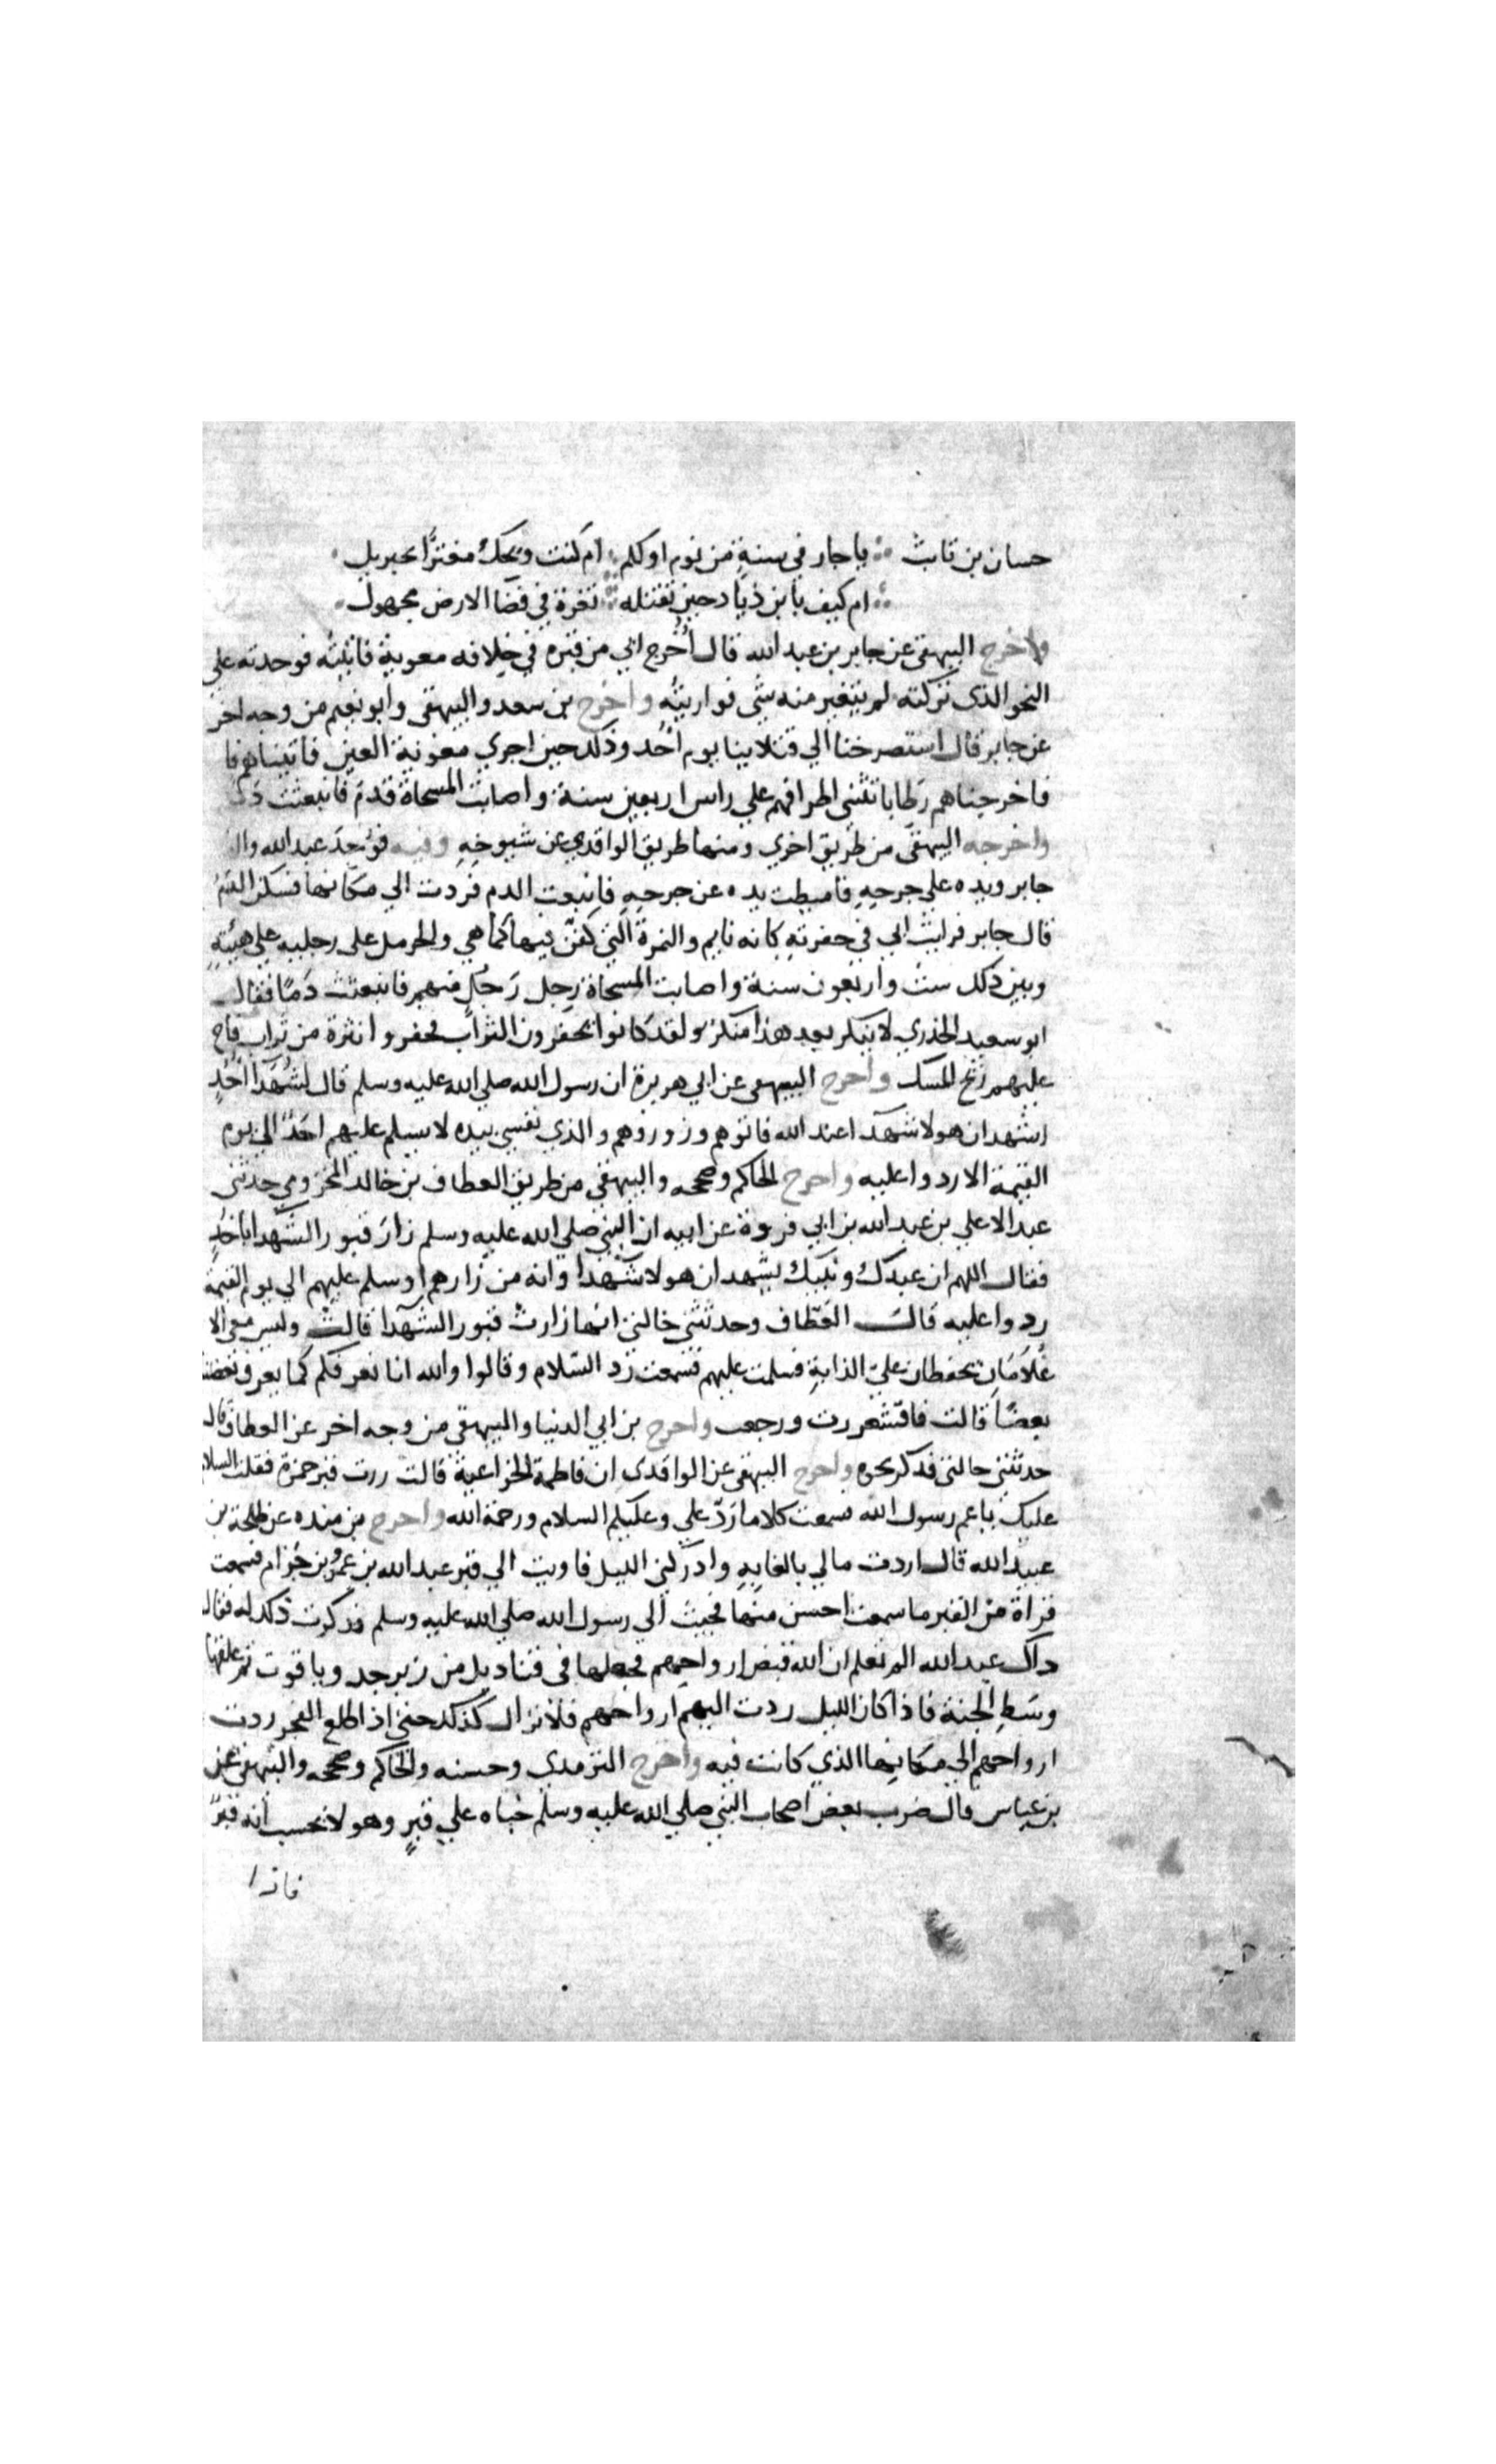 حسان بن ثابث ياحار في سنةٍ من نوم اوكلم ام كنت ويحك مغترًّا بجبريل
ام كيف بابن ذياد حين تقتله تغرة في فضا الارض مجهول
واخرج البيهقى عن جابر بن عبد الله قال أُخرج ابي من قبره في خلافه معوية فاتيته فوجدته علي
النحو الذى تركته لم يتغير منه شي فواريته واخرج بن سعد والبيهقى وابو نعيم من وجه اخر
عن جابر قال استصرخنا الي قتلانا يوم أُحد وذلك حين اجري معوية العين فاتيناهم فا
فاخرجناهم رطابا تثنى اطرافهم علي راس اربعين سنة واصابت المسحاة قدم فانبعثت
واخرجه البيهقى من طريق اخري ومنها طريق الواقدي عن شيوخه وفيه فوُجد عبد الله وال
جابر ويده على جرحه فاميطت يده عن جرحه فانبعث الدم فردت الي مكانها فسكن الدم
قال جابر فرايث ابي في حفرته كانه نايم والنمرة التي كفن فيها كما هي والحرمل على رجليه علي هيئته
وبين ذلك ست واربعون سنة واصابت المسحاة رجل رَجُل منهم فانبعثث دَمًا فقال
ابو سعيد الخذري لا ينكر بعد هذا منكر ولقد كانوا يحفرون التراب فحفروا نثرة من تراب فاح
عليهم ريح المسك واخرج البيهقى عن ابي هريرة ان رسول الله صلي الله عليه وسلم قال لشُهَدآ اُحُدٍ
اشهد ان هولا شهدآ عند الله فاتوهم وزوروهم والذي نفسي بيده لا يسلم عليهم احَدٌ الي يوم
القيمة الا ردوا عليه واخرج الحاكم وصححه والبيهقي من طريق العطاف بن خالد المخزومي حدثنى
عبد الاعلي بن عبد الله بن ابي فروة عن ابيه ان النبي صلي الله عليه وسلم زارَ قبور الشهدا باحُدٍ
فقال اللهم ان عبدك ونبيك يشهد ان هولا شهدا وانه من زارهم او سلم عليهم الي يوم القيمة
ردوا عليه قالَ العطّاف وحدثثني خالتى انها زارث قبور الشهدا قالث وليس معي الا
غُلَامَانِ يحفظان عليّ الدابة فسلمت عليهم فسمعت رد السّلام وقالوا والله انا نعرفكم كما يعرف بعضنا
بعضًا قالت فاقشعررت ورجعت واخرج بن ابي الدنيا والبيهقى من وجه اخر عن العطاف قال
حدثتنى خالتى فذكر نحوه واخرج البيهقى عن الواقدى ان فاطمة الخزاعية قالت زرت قبر حمزة فقلت السلام
عليك ياعم رسول الله فسمعت كلاما رَدّ علي وعليكم السلام ورحمة الله واخرج بن منده عن طلحة بن
عبيد الله قال اردت مالي بالغابهِ وادركني الليل فاويت الي قبر عبد الله بن عمرو بن حزام فسمعت
قراة من القبر ما سمعت احسن منها فجيث الي رسول الله صلي الله عليه وسلم فذكرت ذلك له فقال
داك عبد الله الم تعلم ان الله قبض ارواحهم فجعلها فى قناديل من زبرجد وياقوت ثم علقها
وسَطِ الجنة فاذا كان الليل ردت اليهم ارواحهم فلا تزال كذلك حتي اذ اطلع الفجر ردت
ارواحهم الي مكانها الذي كانت فيه واخرج الترمدي وحسنه والحاكم وصححه والبيهقى عن
بن عباس قال ضرب بعض اصحاب النبي صلي الله عليه وسلم خباه علي قبرٍ وهو لا يحسب انه قبرٌ
فاذا